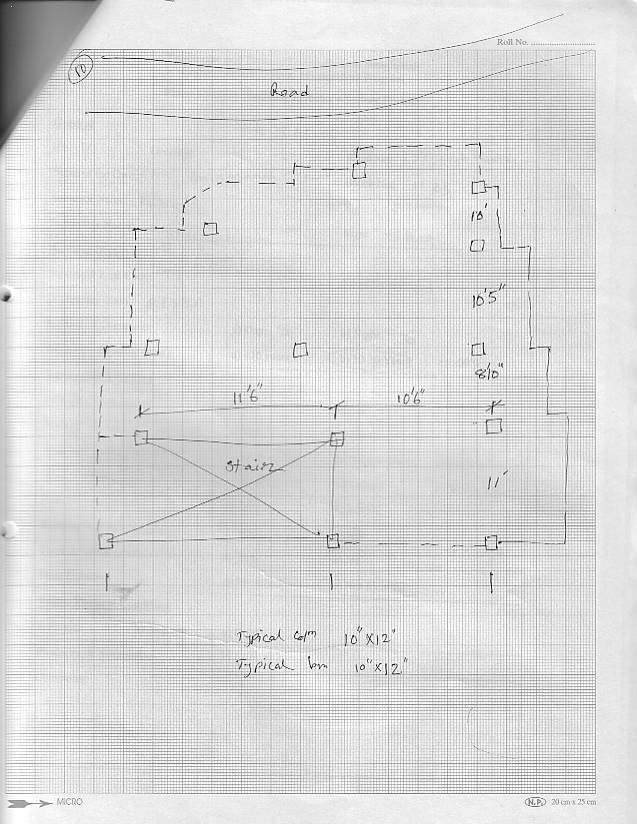 Roll No. ........................
10
Road
10'
10'5"
8'0"
11'6" 10'6"
Stair
11'
Typical colm 10"X12"
Typical bm 10"X12"
MICRO
N.P. 20 cm x 25 cm